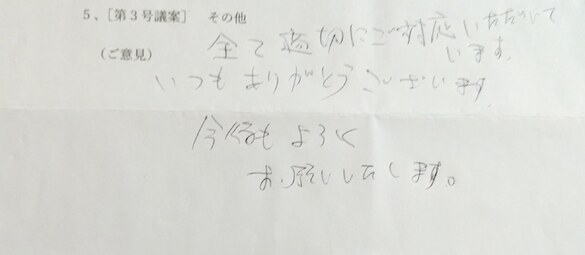 5、［第３号議案］　その他
（ご意見）
全て適切にご対応いただいて
います。
いつもありがとうございます。
今後もよろしく
お願いいたします。